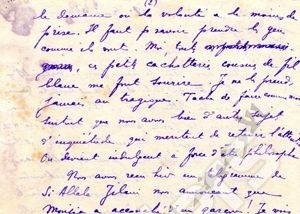 (2)
le domaine où la volonté a le moins de
prise. Il faut pouvoir prendre les gens
comme ils sont. Moi, tout
ces petites cachotteries cousues de fil
blanc me font sourire. Je ne les prends
jamais au tragique. Tâche de faire comme moi
surtout que nous avons bien d'autres sujets
d'inquiétude qui méritent de retenir l'attention
On devient indulgent à force d'être philosophe
Nous avons reçu hier un télégramme de
Si Allala Jilani nous annonçant que
Monia a accouché d'un garçon! Je viens